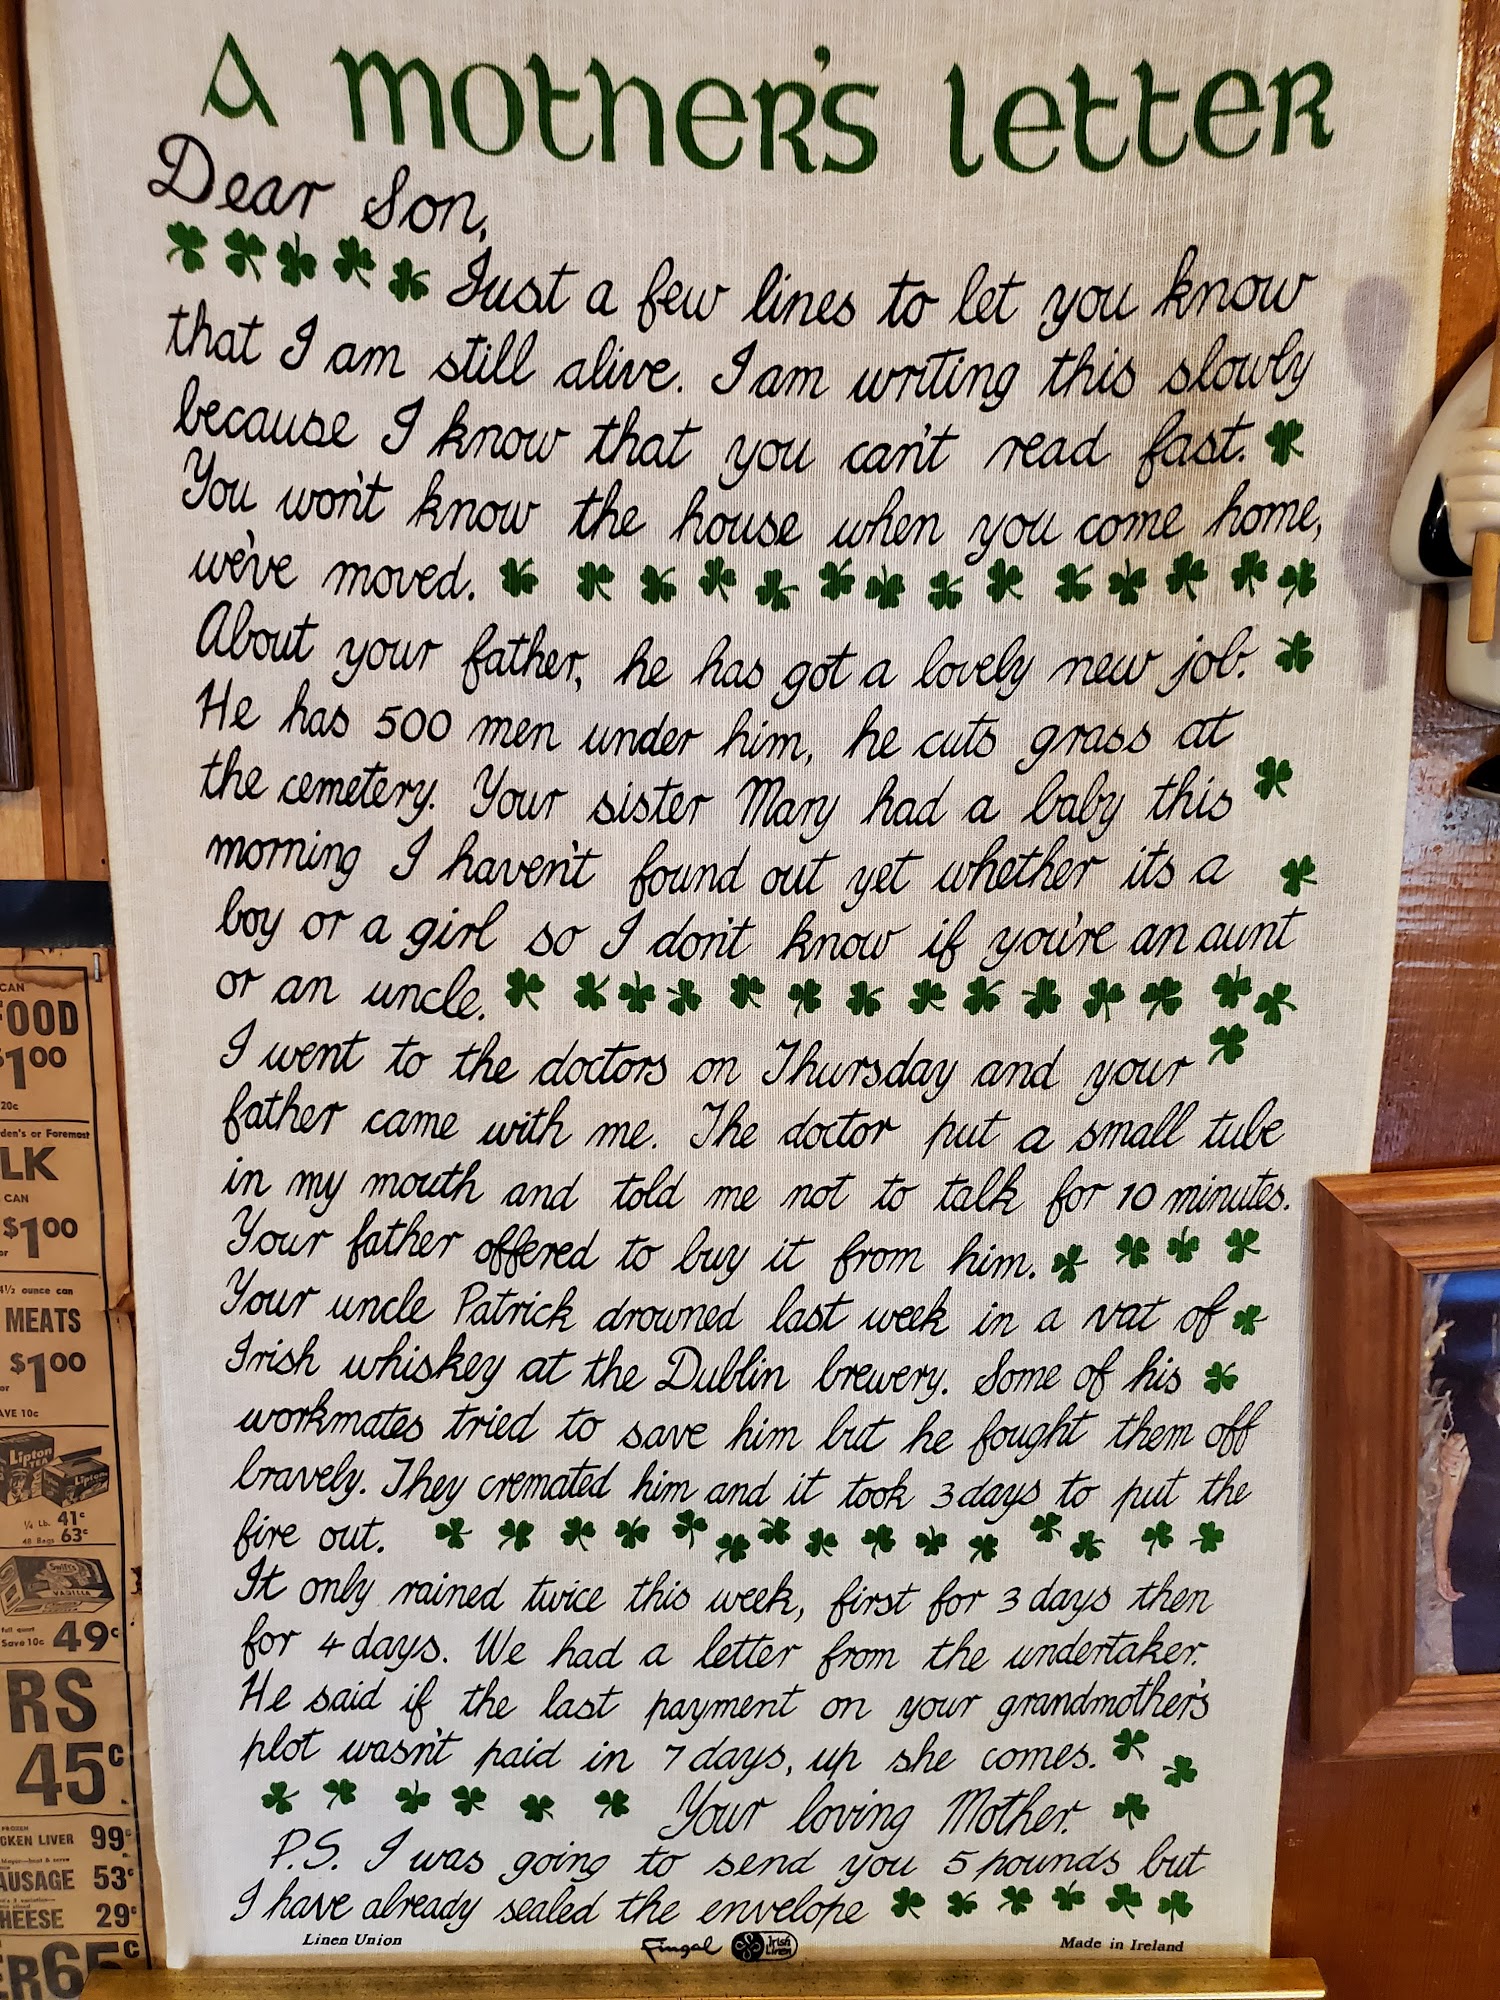 A mother's letter
Dear Son,
Just a few lines to let you know
that I am still alive. I am writing this slowly
because I know that you can't read fast.
You won't know the house when you come home,
we've moved.
About your father, he has got a lovely new job.
He has 500 men under him, he cuts grass at
the cemetery. Your sister Mary had a baby this
morning I haven't found out yet whether its a
boy or a girl so I don't know if you're an aunt
or an uncle.
I went to the doctors on Thursday and your
father came with me. The doctor put a small tube
in my mouth and told me not to talk for 10 minutes.
Your father offered to buy it from him.
Your uncle Patrick drowned last week in a vat of
Irish whiskey at the Dublin brewery. Some of his
workmates tried to save him but he fought them off
bravely. They cremated him and it took 3 days to put the
fire out.
It only rained twice this week, first for 3 days then
for 4 days. We had a letter from the undertaker.
He said if the last payment on your grandmother's
plot wasn't paid in 7 days, up she comes.
Your loving Mother.
P.S. I was going to send you 5 pounds but
I have already sealed the envelope
Linen Union
Fingal
Irish Linen
Made in Ireland
CAN
FOOD
$1.00
20c
den's or Foremost
LK
CAN
$1.00
4½ ounce can
MEATS
$1.00
AVE 10c
Lipton
TEA
Lipton
¼ Lb. 41c
48 Bags 63c
Swift's
VANILLA
Save 10c 49c
RS
45c
FROZEN
CKEN LIVER 99c
AUSAGE 53c
HEESE 29c
ER 65c